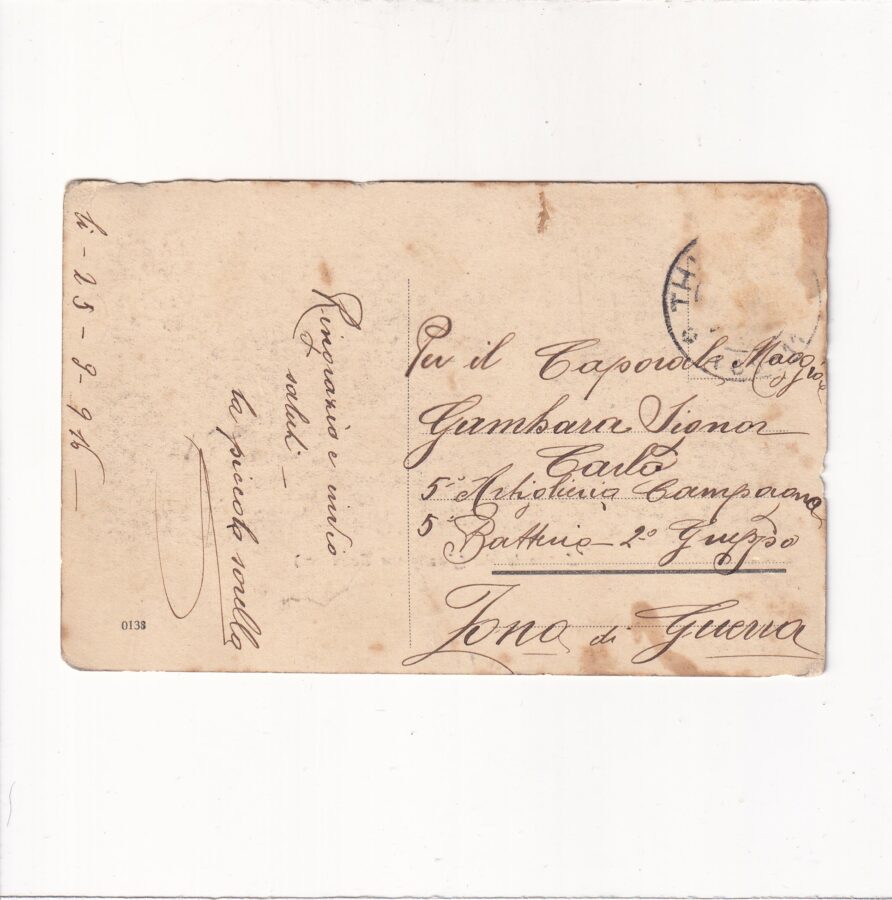 li - 25 - 9 - 916 -
Ringrazio e invio
saluti -
la piccola sorella
0138
TH
Per il Caporale Maggiore
Gambara Signor
Carlo
5° Artiglieria Campagna
5ª Batteria - 2° Gruppo
Zona di Guerra